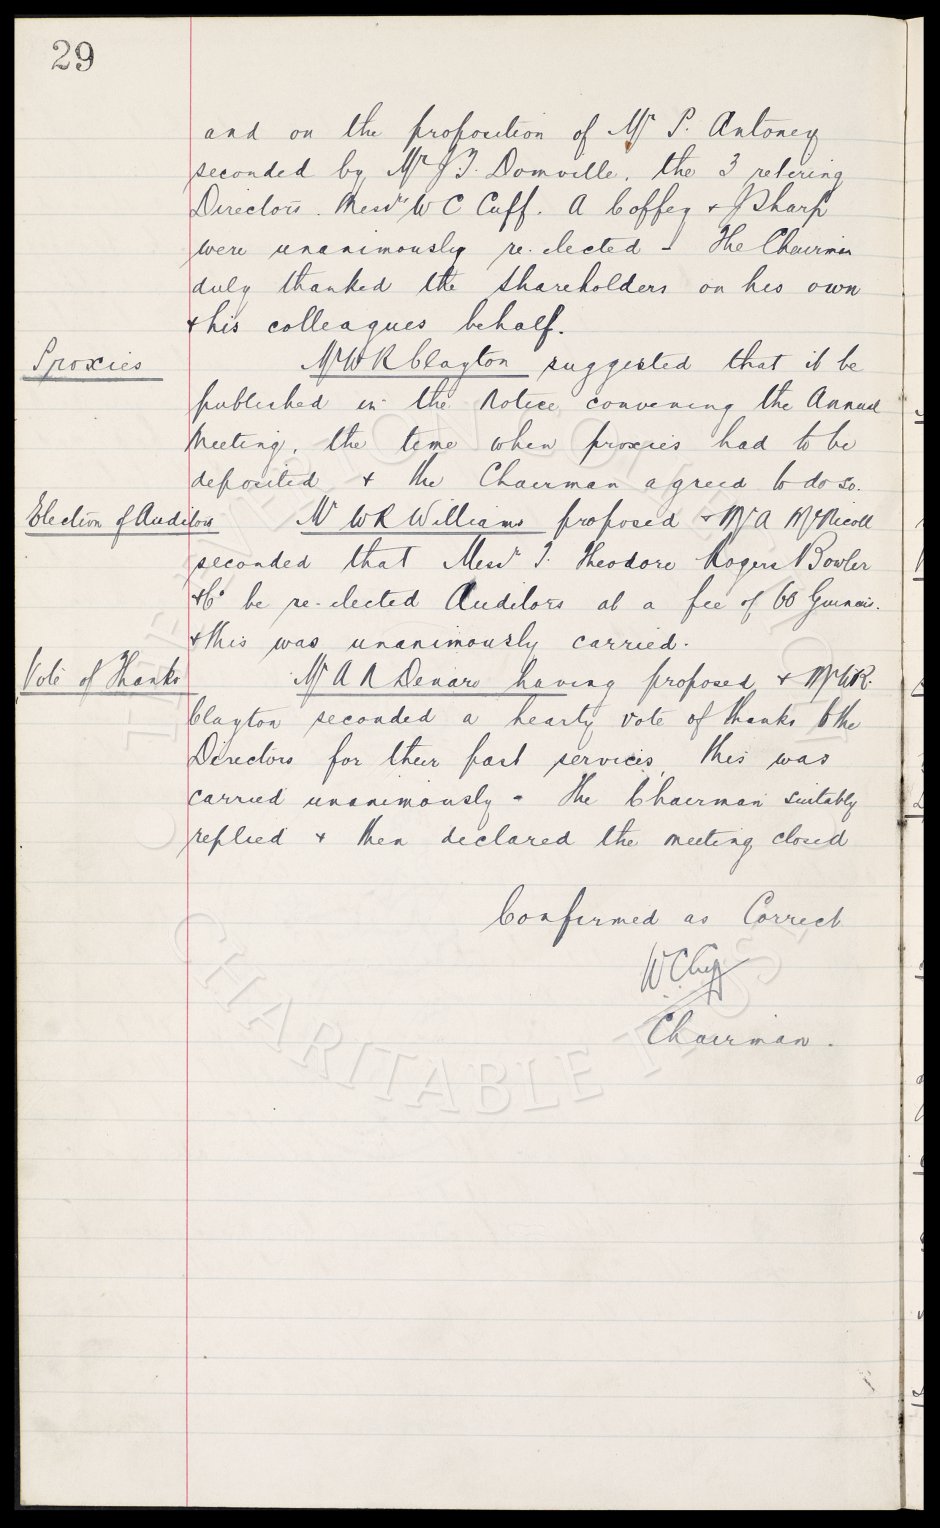 29
and on the proposition of Mr P. Antoney
seconded by Mr J. T. Domville, the 3 retiring
Directors. Messrs W C Cuff. A Coffey & J Sharp
were unanimously re-elected - The Chairman
duly thanked the shareholders on his own
& his colleagues behalf.
Proxies
Mr W R Clayton suggested that it be
published in the Notice convening the Annual
Meeting, the time when proxies had to be
deposited & the Chairman agreed to do so.
Election of Auditors
Mr W R Williams proposed & Mr A McNicoll
seconded that Messrs T. Theodore Rogers Bowler
& Co be re-elected Auditors at a fee of 60 Guineas.
& this was unanimously carried.
Vote of Thanks
Mr A R Denaro having proposed & Mr W R.
Clayton seconded a hearty vote of thanks to the
Directors for their past services, this was
carried unanimously - The Chairman suitably
replied & then declared the meeting closed
Confirmed as Correct
W. C. Cuff
Chairman.
THE EVERTON
CHARITABLE TRUST